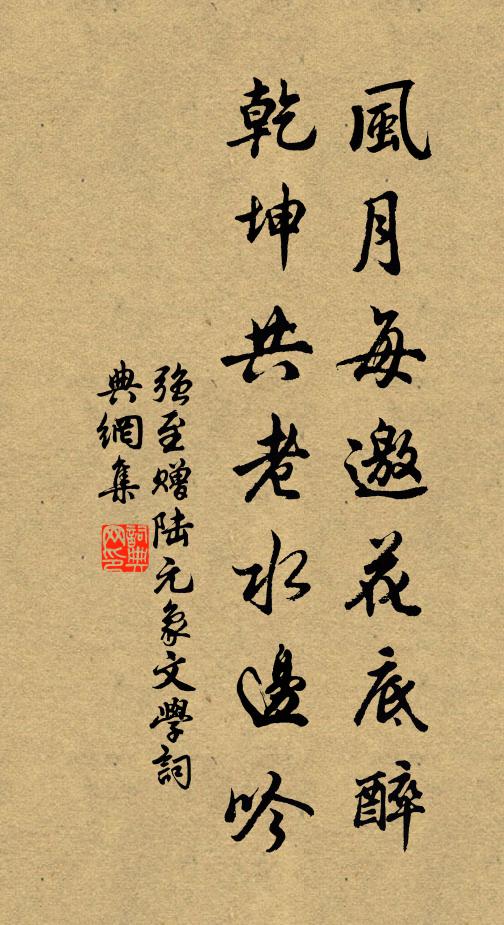 風月每邀花底醉
乾坤共老水邊吟
强至赠陆元象文學詞
典網集
詞典
网印